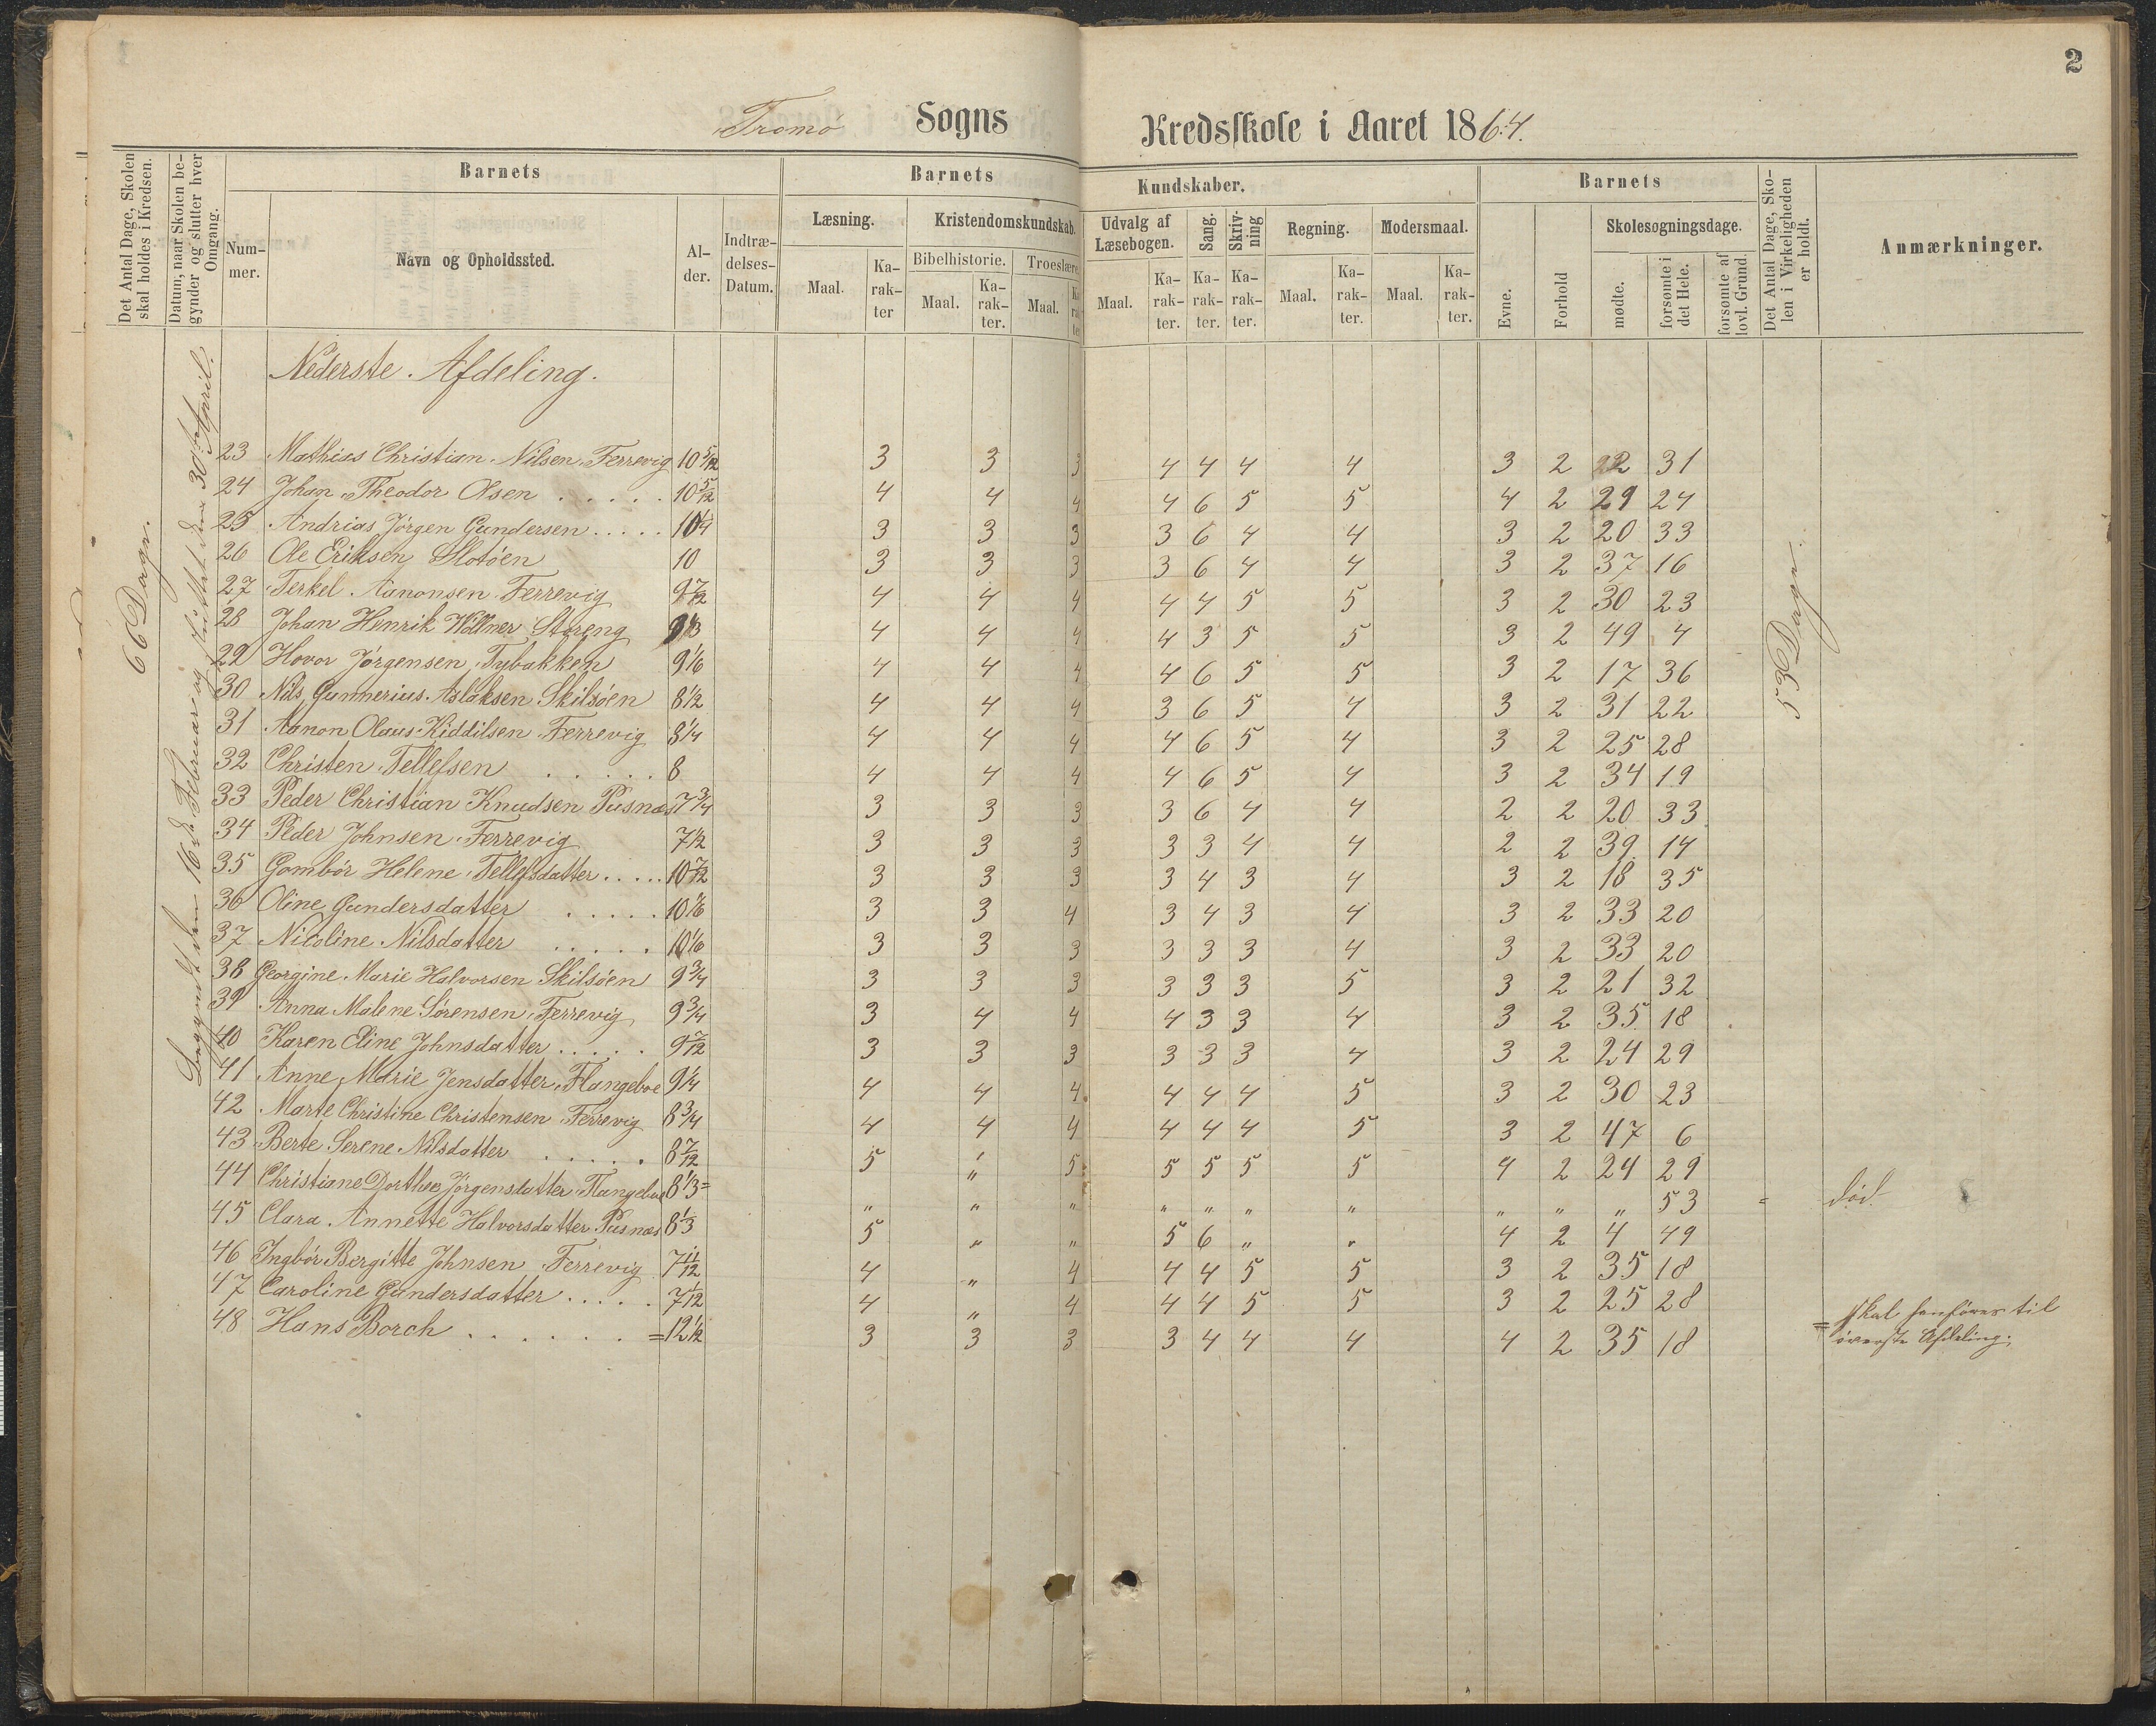 2
Tromö Sogns Kredsskole i Aaret 1864.
Det Antal Dage, Skolen skal holdes i Kredsen.
Datum, naar Skolen begynder og slutter hver Omgang.
Barnets
Nummer.
Navn og Opholdssted.
Alder.
Indtrædelses-Datum.
Barnets Kundskaber.
Læsning.
Maal. Karakter
Kristendomskundskab.
Bibelhistorie. Troeslære
Maal. Karakter. Maal. Karakter
Udvalg af Læsebogen.
Maal. Karakter.
Sang. Karakter.
Skrivning Karakter.
Regning.
Maal. Karakter.
Modersmaal.
Maal. Karakter.
Barnets
Evne.
Forhold
Skolesøgningsdage.
mødte.
forsømte i det Hele.
forsømte af lovl. Grund.
Det Antal Dage, Skolen i Virkeligheden er holdt.
Anmærkninger.
66 Dage.
Begyndt den 16de Februar og sluttet den 30te April.
53 Dage.
Nederste Afdeling.
23 Mathias Christian Nilsen Færrevig 10 5/12 3 3 3 4 4 4 4 3 2 22 31
24 Johan Theodor Olsen . . . . . 10 5/12 4 4 4 4 6 5 5 4 2 29 24
25 Andrias Jørgen Gundersen . . . . . 10 1/4 3 3 3 3 6 4 4 3 2 20 33
26 Ole Eriksen Slotöen 10 3 3 3 3 6 4 4 3 2 37 16
27 Terkel Aanonsen Færrevig 9 7/12 4 4 4 4 4 5 5 3 2 30 23
28 Johan Henrik Wöllner Støreng 9 1/3 4 4 4 4 3 5 5 3 2 49 4
29 Hovor Jørgensen Tybakken 9 1/6 4 4 4 4 6 5 5 3 2 17 36
30 Nils Gunnerius Aslaksen Skilsöen 8 1/2 4 4 4 3 6 5 4 3 2 31 22
31 Aanon Olaus Kiddilsen Færrevig 8 1/4 4 4 4 4 6 5 4 3 2 25 28
32 Christen Tellefsen . . . . . 8 4 4 4 4 6 5 4 3 2 34 19
33 Peder Christian Knudsen Pusnæs 7 3/4 3 3 3 3 6 4 4 2 2 20 33
34 Peder Johnsen Færrevig 7 1/2 3 3 3 3 3 4 4 2 2 39 14
35 Gombör Helene Tellefsdatter . . . . . 10 7/12 3 3 3 3 4 3 4 3 2 18 35
36 Oline Gundersdatter . . . . . 10 1/6 3 3 4 3 4 3 4 3 2 33 20
37 Nicoline Nilsdatter . . . . . 10 1/6 3 3 3 3 3 3 4 3 2 33 20
38 Georgine Marie Halvorsen Skilsöen 9 3/4 3 3 3 3 3 3 5 3 2 21 32
39 Anna Malene Sørensen Færrevig 9 3/4 3 4 4 4 3 3 4 3 2 35 18
40 Karen Eline Johnsdatter . . . . . 9 7/12 3 3 3 3 3 3 4 3 2 24 29
41 Anne Marie Jensdatter Flangeboe 9 1/4 4 4 4 4 4 4 5 3 2 30 23
42 Marte Christine Christensen Færrevig 8 3/4 4 4 4 4 4 4 5 3 2 47 6
43 Berte Serene Nilsdatter . . . . . 8 7/12 5 " 5 5 5 5 5 4 2 24 29
44 Christiane Dorthea Jørgensdatter Flangeboe 8 1/3 = " " " " " " " " " " 53 = död.
45 Clara Annette Halvorsdatter Pusnæs 8 1/3 5 " " 5 6 " " 4 2 4 49
46 Ingbör Bergitte Johnsen Færrevig 7 11/12 4 " 4 4 4 5 5 3 2 35 18
47 Caroline Gundersdatter . . . . . 7 1/12 4 " 4 4 4 5 5 3 2 25 28
48 Hans Borch . . . . . . = 12 1/2 3 3 3 3 4 4 4 4 2 35 18 = skal henføres til
øverste Afdeling.